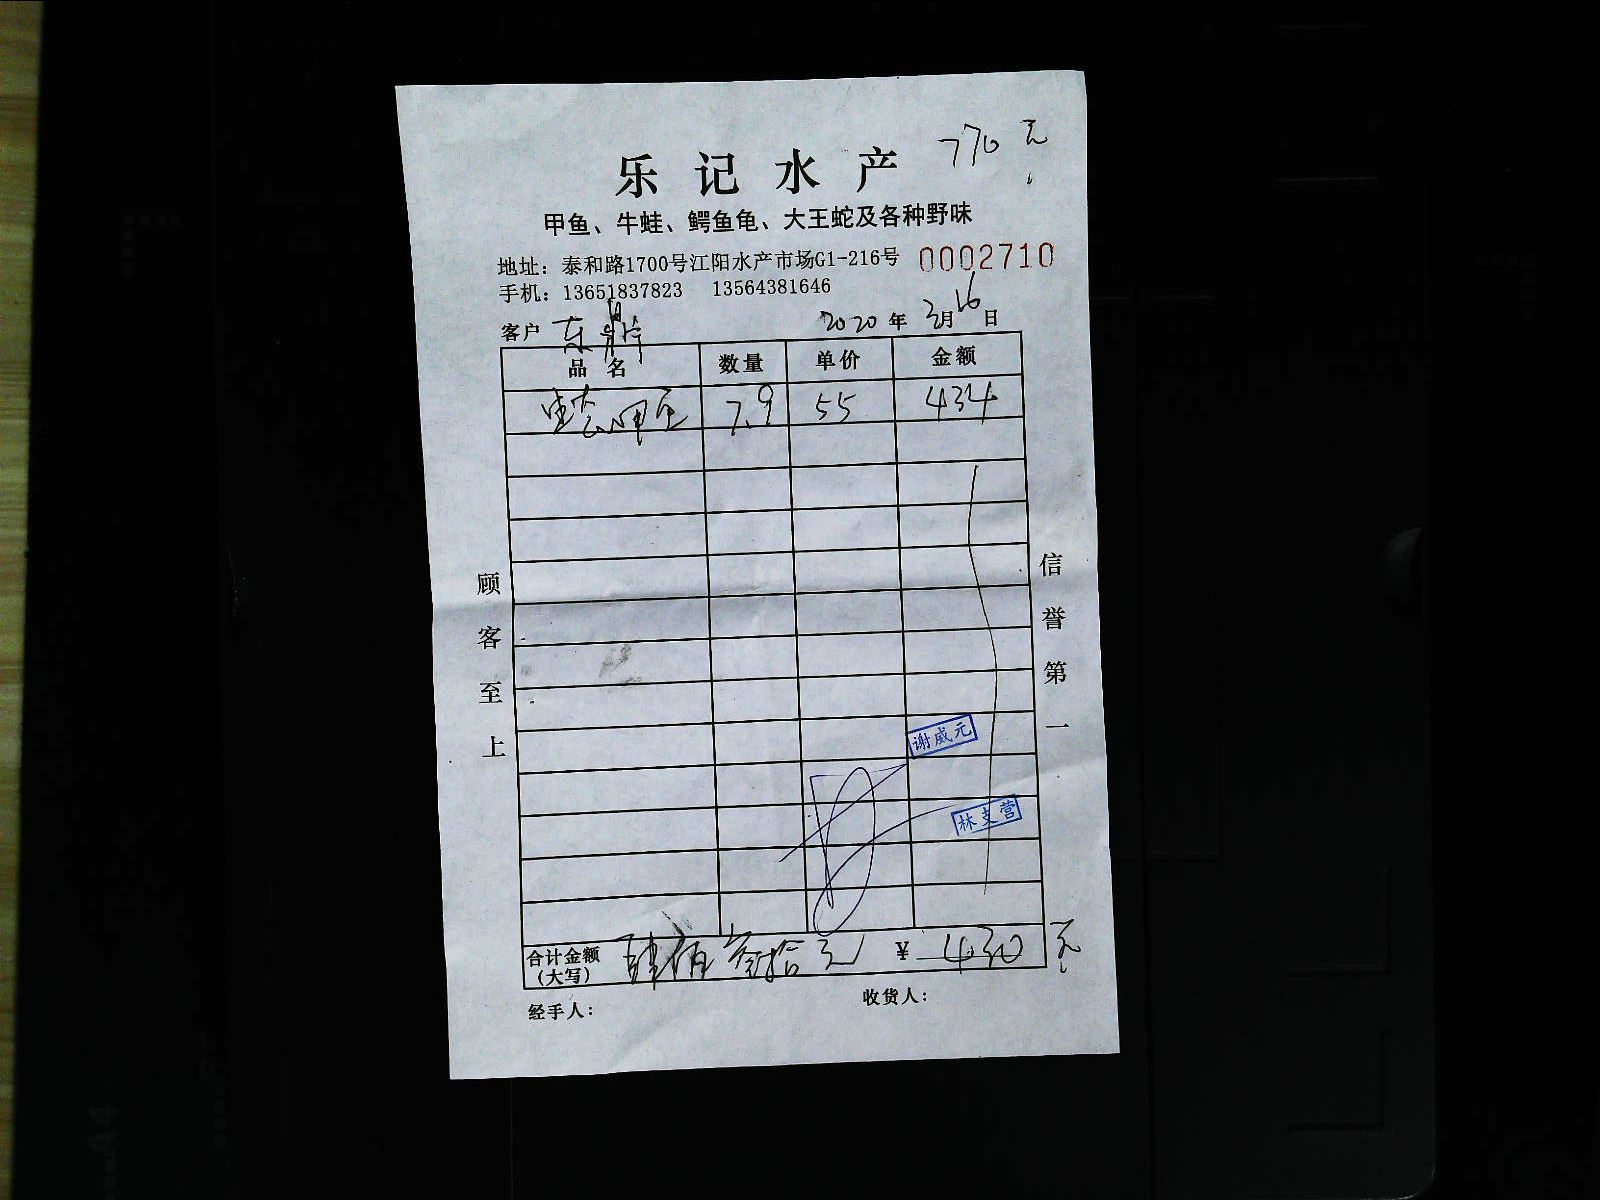 770元
乐记水产
甲鱼、牛蛙、鳄鱼龟、大王蛇及各种野味
地址：泰和路1700号江阳水产市场G1-216号 0002710
手机：13651837823 13564381646
客户 东 2020年3月16日
品名 数量 单价 金额
7.9 55 434
顾客至上
信誉第一
谢威元
林支营
合计金额（大写） 肆佰叁拾元 ¥ 430元
经手人： 收货人：